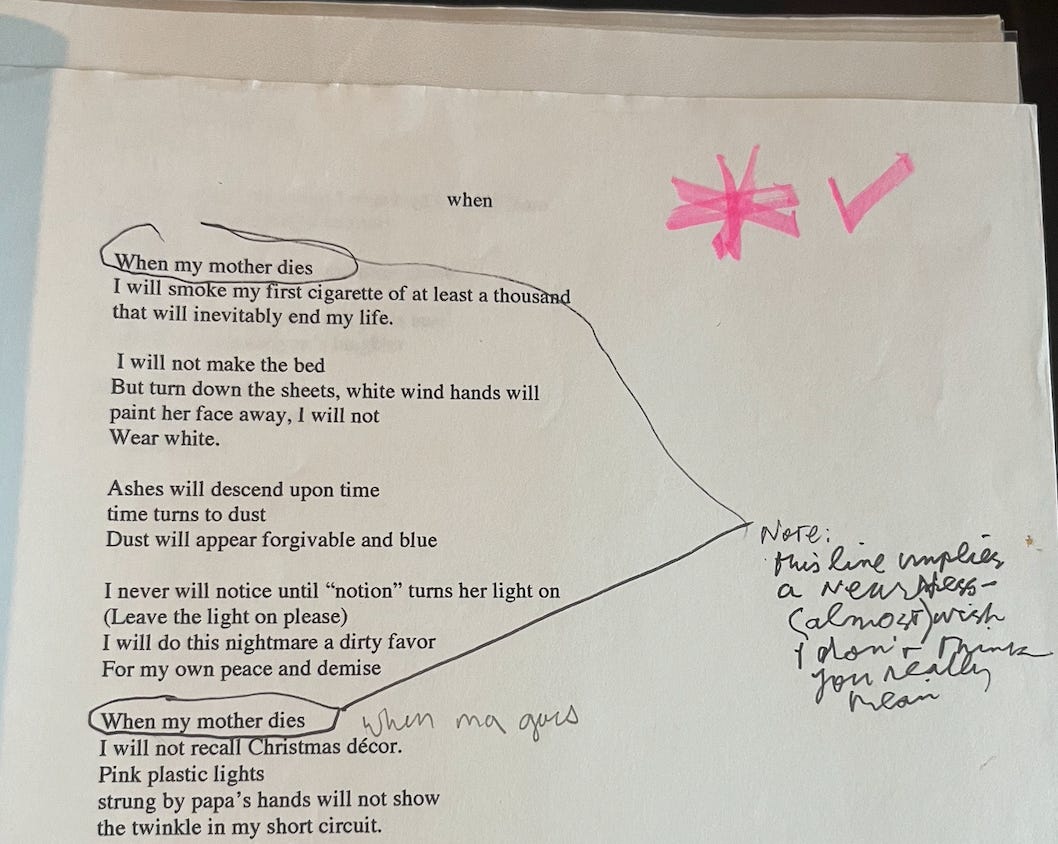 when
When my mother dies
I will smoke my first cigarette of at least a thousand
that will inevitably end my life.
I will not make the bed
But turn down the sheets, white wind hands will
paint her face away, I will not
Wear white.
Ashes will descend upon time
time turns to dust
Dust will appear forgivable and blue
I never will notice until “notion” turns her light on
(Leave the light on please)
I will do this nightmare a dirty favor
For my own peace and demise
When my mother dies
when ma goes
I will not recall Christmas décor.
Pink plastic lights
strung by papa’s hands will not show
the twinkle in my short circuit.
Note:
this line implies
a nearness-
(almost) wish
I don't think
you really
mean